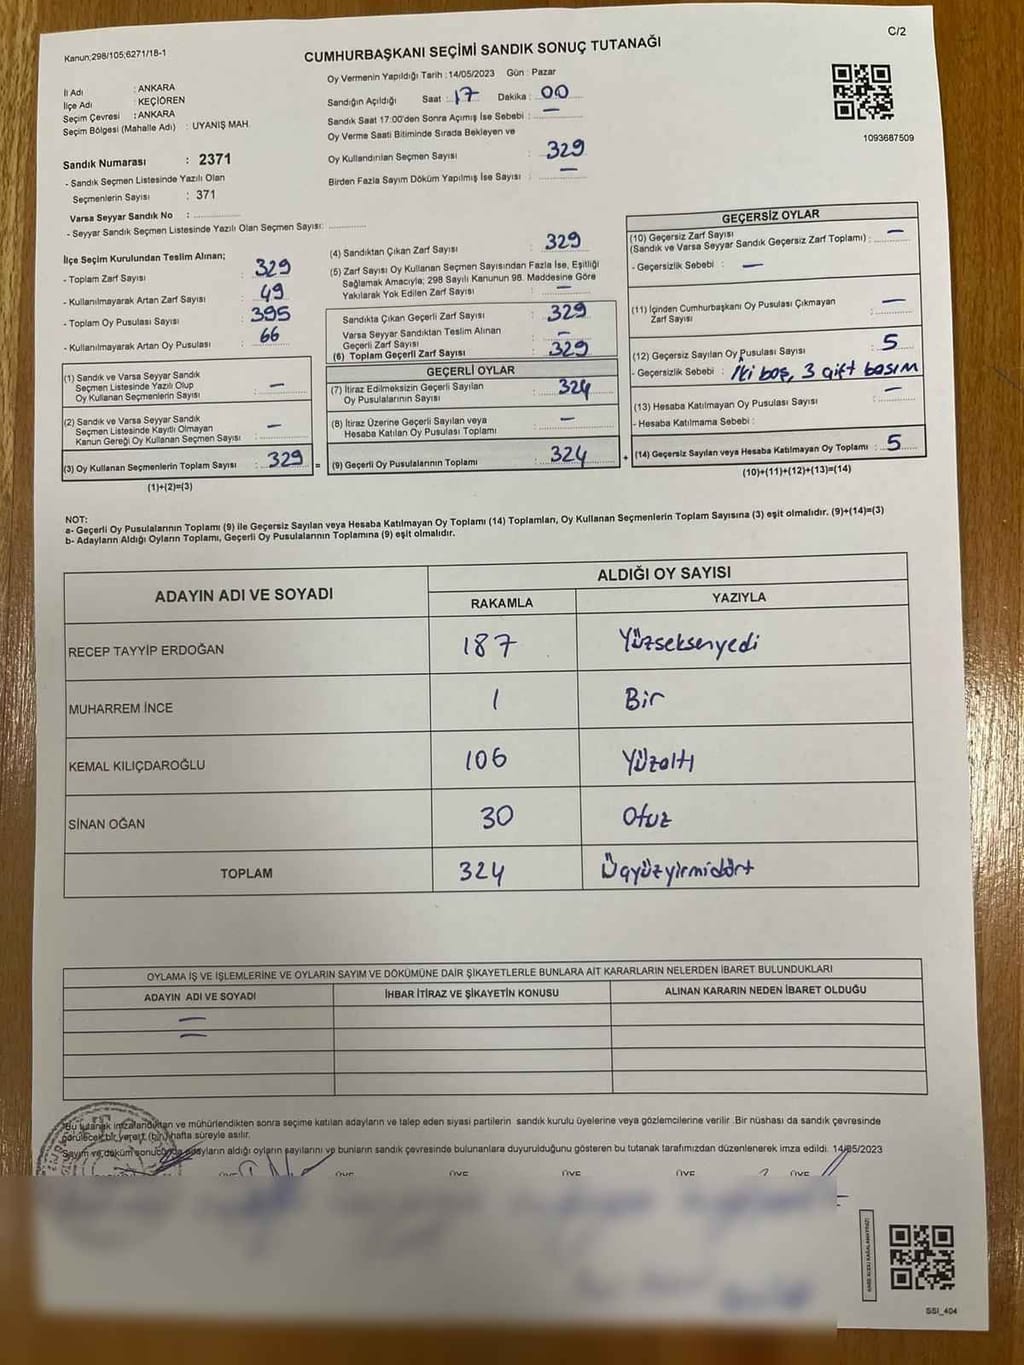 Kanun;298/105;6271/18-1
C/2
CUMHURBAŞKANI SEÇİMİ SANDIK SONUÇ TUTANAĞI
İl Adı : ANKARA
İlçe Adı : KEÇİÖREN
Seçim Çevresi : ANKARA
Seçim Bölgesi (Mahalle Adı) : UYANIŞ MAH.
Sandık Numarası : 2371
- Sandık Seçmen Listesinde Yazılı Olan
Seçmenlerin Sayısı : 371
Varsa Seyyar Sandık No :
- Seyyar Sandık Seçmen Listesinde Yazılı Olan Seçmen Sayısı:
Oy Vermenin Yapıldığı Tarih : 14/05/2023 Gün : Pazar
Sandığın Açıldığı Saat : 17 Dakika : 00
Sandık Saat 17:00'den Sonra Açımış İse Sebebi : —
Oy Verme Saati Bitiminde Sırada Bekleyen ve
Oy Kullandırılan Seçmen Sayısı : 329
Birden Fazla Sayım Döküm Yapılmış İse Sayısı : —
1093687509
İlçe Seçim Kurulundan Teslim Alınan;
- Toplam Zarf Sayısı : 329
- Kullanılmayarak Artan Zarf Sayısı : 49
- Toplam Oy Pusulası Sayısı : 395
- Kullanılmayarak Artan Oy Pusulası : 66
(1) Sandık ve Varsa Seyyar Sandık
Seçmen Listesinde Yazılı Olup
Oy Kullanan Seçmenlerin Sayısı : —
(2) Sandık ve Varsa Seyyar Sandık
Seçmen Listesinde Kayıtlı Olmayan
Kanun Gereği Oy Kullanan Seçmen Sayısı : —
(3) Oy Kullanan Seçmenlerin Toplam Sayısı : 329 =
(1)+(2)=(3)
(4) Sandıktan Çıkan Zarf Sayısı : 329
(5) Zarf Sayısı Oy Kullanan Seçmen Sayısından Fazla İse, Eşitliği
Sağlamak Amacıyla; 298 Sayılı Kanunun 98. Maddesine Göre
Yakılarak Yok Edilen Zarf Sayısı : —
Sandıkta Çıkan Geçerli Zarf Sayısı : 329
Varsa Seyyar Sandıktan Teslim Alınan
Geçerli Zarf Sayısı : —
(6) Toplam Geçerli Zarf Sayısı : 329
GEÇERLİ OYLAR
(7) İtiraz Edilmeksizin Geçerli Sayılan
Oy Pusulalarının Sayısı : 324
(8) İtiraz Üzerine Geçerli Sayılan veya
Hesaba Katılan Oy Pusulası Toplamı : —
(9) Geçerli Oy Pusulalarının Toplamı : 324 +
GEÇERSİZ OYLAR
(10) Geçersiz Zarf Sayısı
(Sandık ve Varsa Seyyar Sandık Geçersiz Zarf Toplamı) : —
- Geçersizlik Sebebi : —
(11) İçinden Cumhurbaşkanı Oy Pusulası Çıkmayan
Zarf Sayısı : —
(12) Geçersiz Sayılan Oy Pusulası Sayısı : 5
- Geçersizlik Sebebi : İki boş, 3 çift basım
(13) Hesaba Katılmayan Oy Pusulası Sayısı : —
- Hesaba Katılmama Sebebi :
(14) Geçersiz Sayılan veya Hesaba Katılmayan Oy Toplamı : 5
(10)+(11)+(12)+(13)=(14)
NOT:
a- Geçerli Oy Pusulalarının Toplamı (9) ile Geçersiz Sayılan veya Hesaba Katılmayan Oy Toplamı (14) Toplamları, Oy Kullanan Seçmenlerin Toplam Sayısına (3) eşit olmalıdır. (9)+(14)=(3)
b- Adayların Aldığı Oyların Toplamı, Geçerli Oy Pusulalarının Toplamına (9) eşit olmalıdır.
ADAYIN ADI VE SOYADI
ALDIĞI OY SAYISI
RAKAMLA YAZIYLA
RECEP TAYYİP ERDOĞAN 187 Yüzseksenyedi
MUHARREM İNCE 1 Bir
KEMAL KILIÇDAROĞLU 106 Yüzaltı
SİNAN OĞAN 30 Otuz
TOPLAM 324 Üçyüzyirmidört
OYLAMA İŞ VE İŞLEMLERİNE VE OYLARIN SAYIM VE DÖKÜMÜNE DAİR ŞİKAYETLERLE BUNLARA AİT KARARLARIN NELERDEN İBARET BULUNDUKLARI
ADAYIN ADI VE SOYADI İHBAR İTİRAZ VE ŞİKAYETİN KONUSU ALINAN KARARIN NEDEN İBARET OLDUĞU
—
—
Bu tutanak imzalandıktan ve mühürlendikten sonra seçime katılan adayların ve talep eden siyasi partilerin sandık kurulu üyelerine veya gözlemcilerine verilir. Bir nüshası da sandık çevresinde
görülecek bir yere (bir) hafta süreyle asılır.
Sayım ve döküm sonucunda adayların aldığı oyların sayılarını ve bunların sandık çevresinde bulunanlara duyurulduğunu gösteren bu tutanak tarafımızdan düzenlenerek imza edildi. 14/05/2023
ÜYE ÜYE ÜYE ÜYE ÜYE
SSI_404